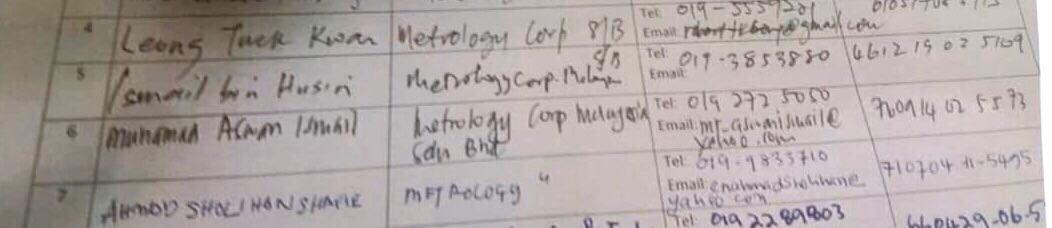 4 Leong Tuck Kwan Metrology Corp S/B Tel: 019-5559201
Email: @gmail.com
5 Ismail bin Husin Metrology Corp. Malaysia S/B Tel: 019-3853880 461219 02 5109
Email:
6 Muhamad Asman Ismail Metrology Corp Malaysia Sdn Bhd Tel: 019 272 5050 760914 02 5573
Email: mr_asmanismail@
yahoo.com
7 AHMAD SHOLIHAN SHAFIE METROLOGY " Tel: 019-9833710 710704-11-5495
Email: enahmadsholihane
yahoo.com
Tel: 019 2289803 660429-06-5